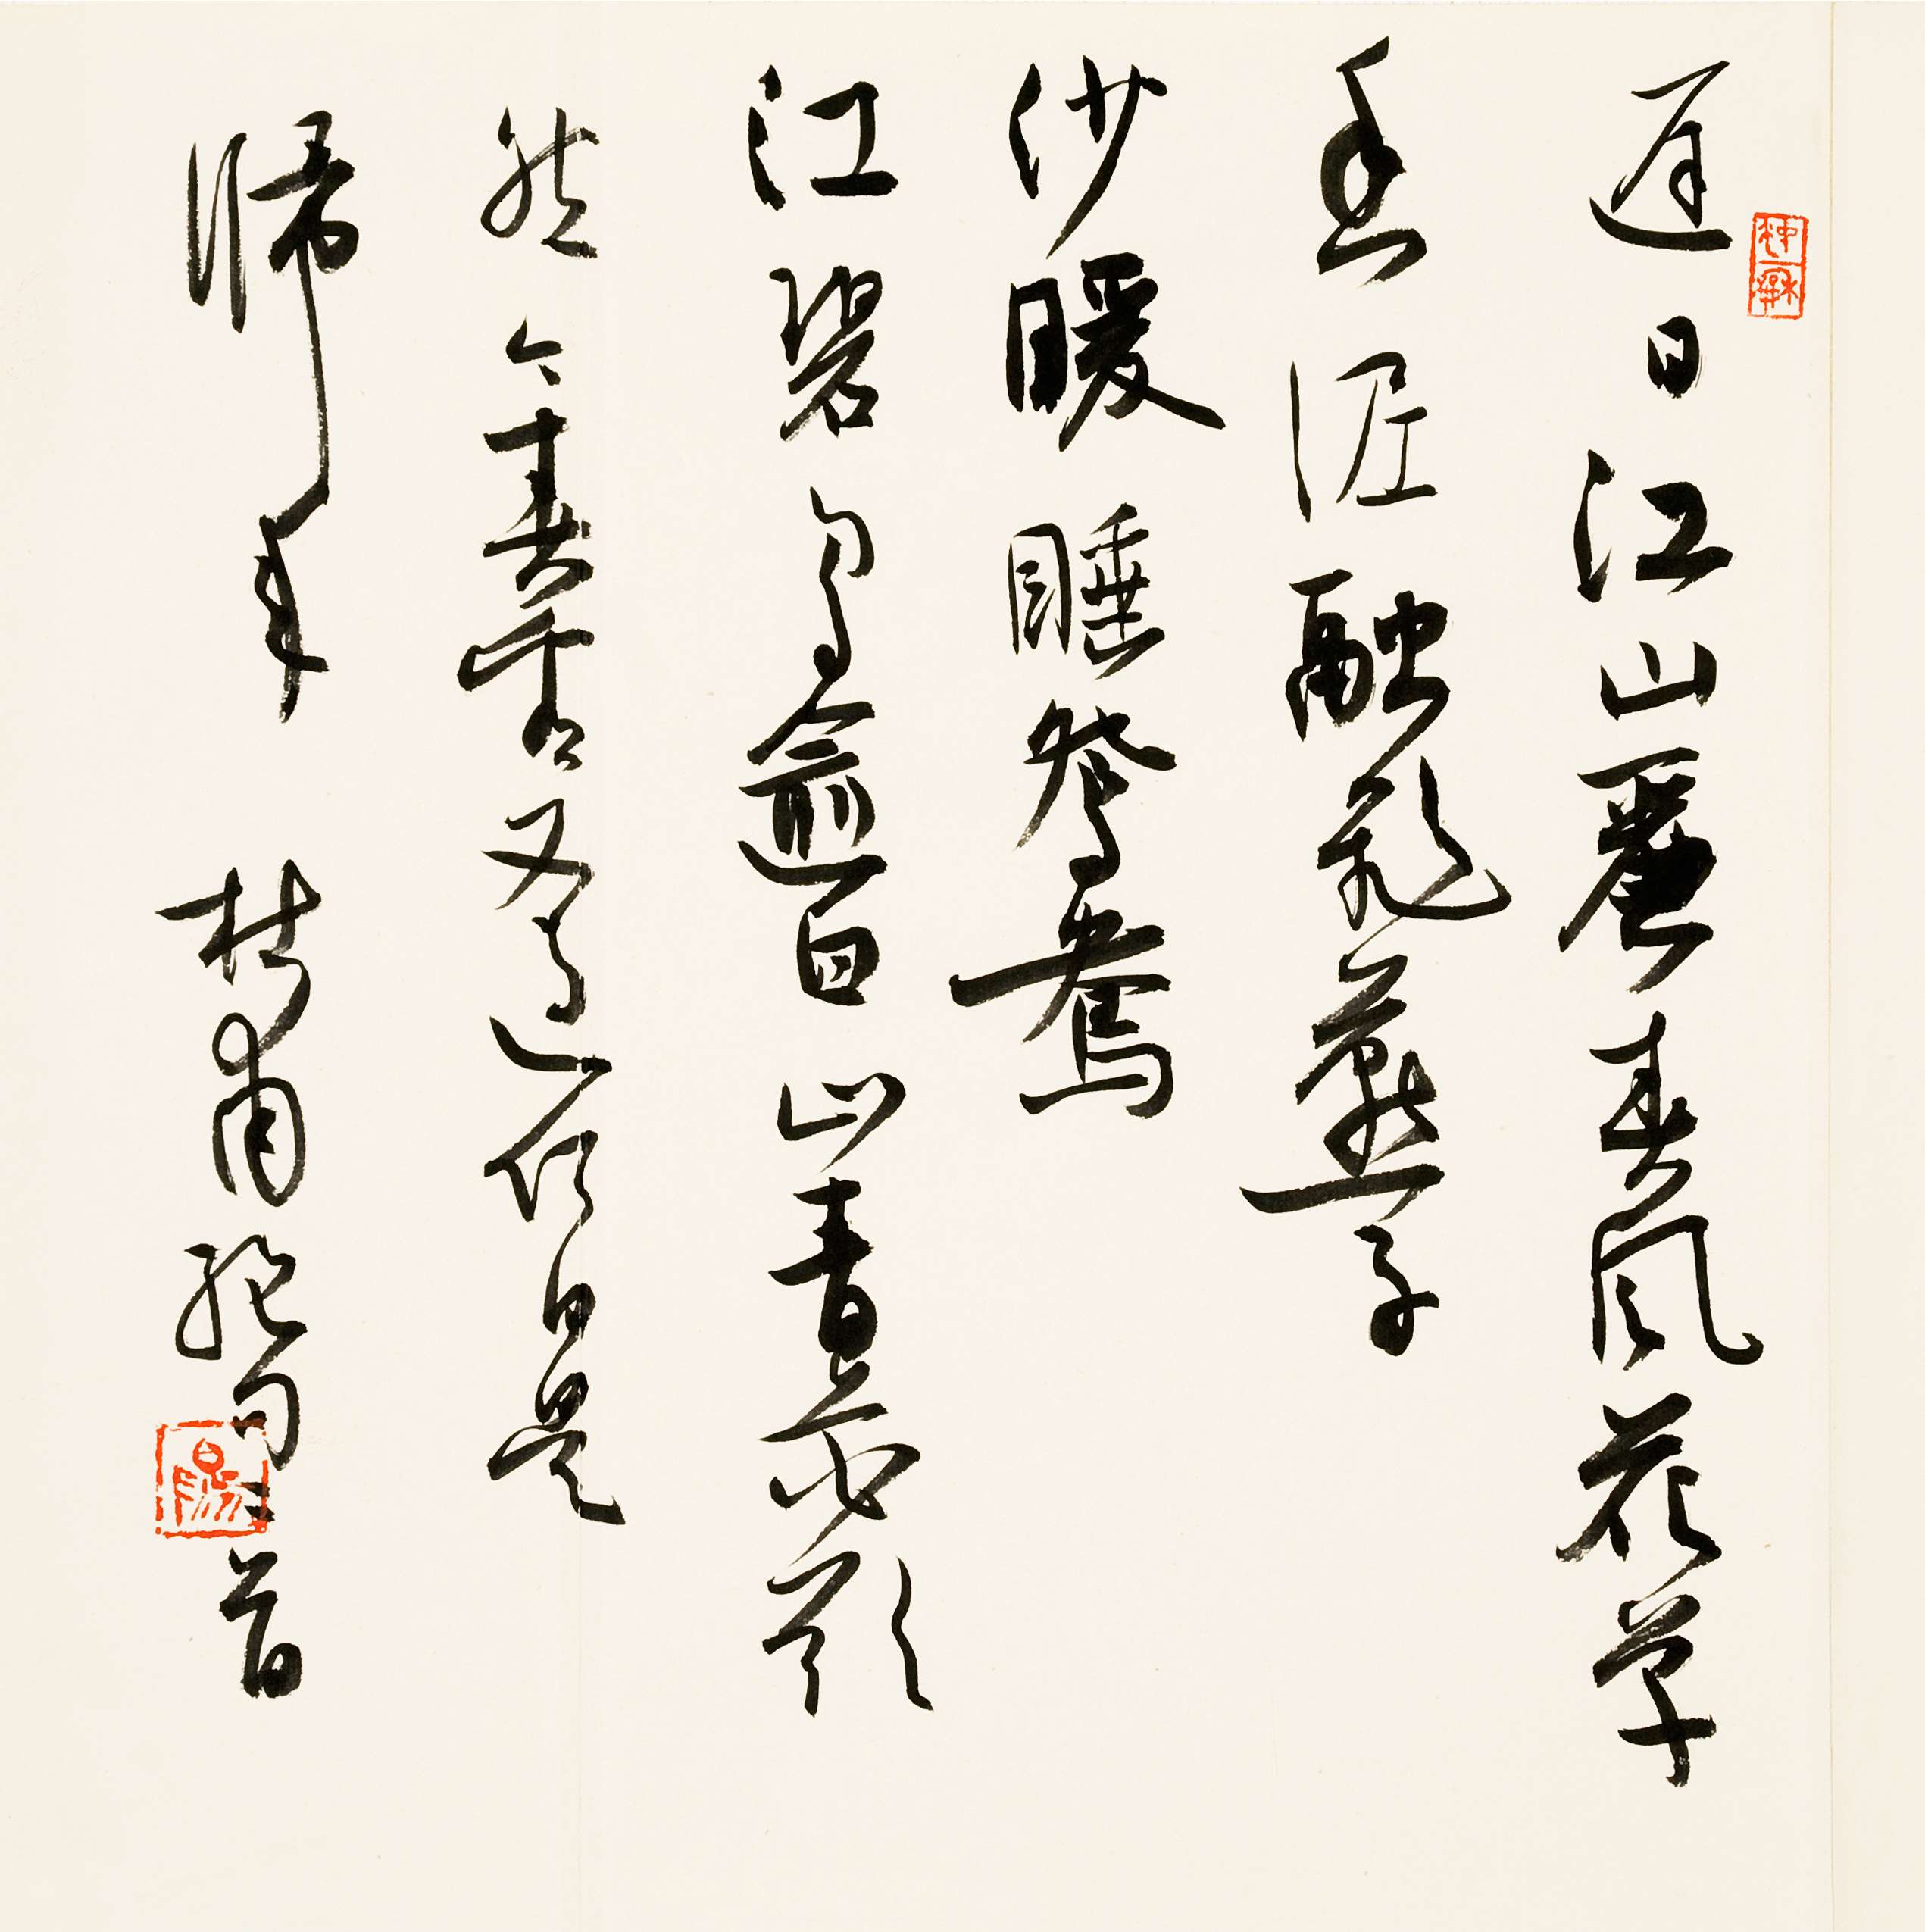 遲日江山麗春風花草
香泥融飛燕子
沙暖睡鴛鴦
江碧鳥逾白山青花欲
然今春看又過何日是
歸年 杜甫絕句二首